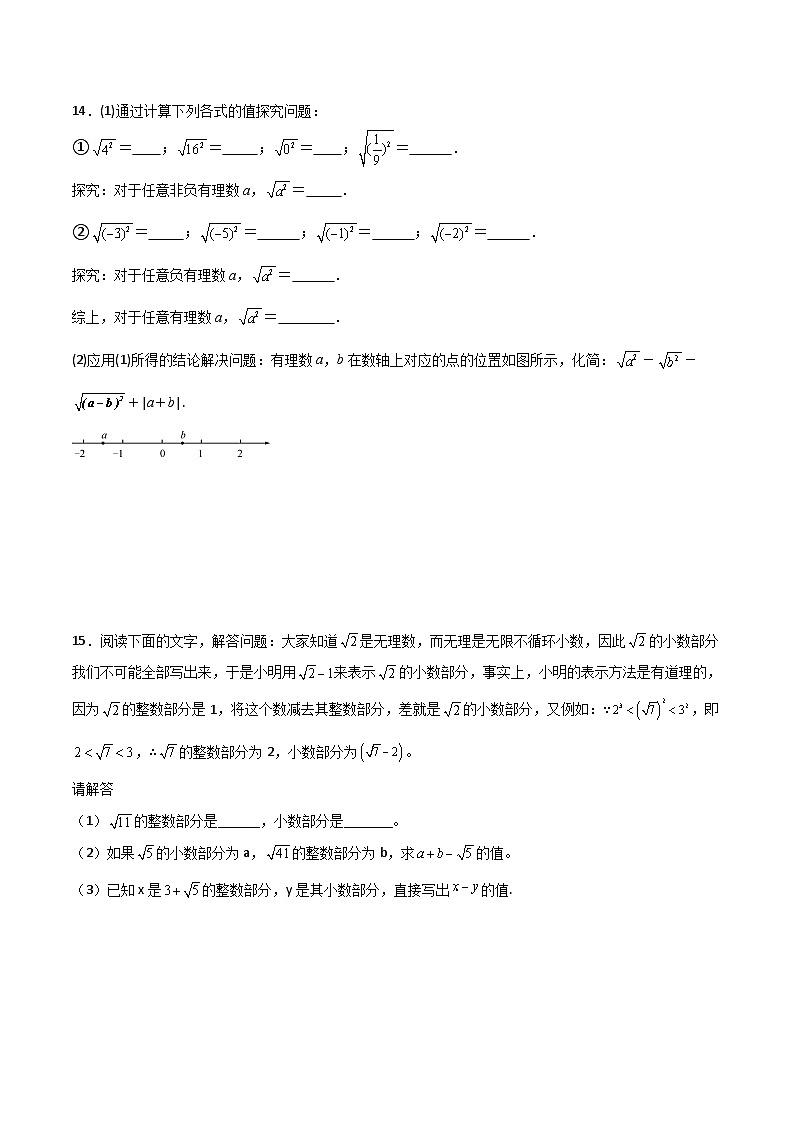 14．(1)通过计算下列各式的值探究问题：
①√4²＝____；√16²＝_____；√0²＝____；√(1/9)²＝______．
探究：对于任意非负有理数a，√a²＝_____．
②√(−3)²＝_____；√(−5)²＝______；√(−1)²＝______；√(−2)²＝______．
探究：对于任意负有理数a，√a²＝______．
综上，对于任意有理数a，√a²＝________．
(2)应用(1)所得的结论解决问题：有理数a，b在数轴上对应的点的位置如图所示，化简：√a²－√b²－
√(a−b)²＋|a＋b|．
a b
−2 −1 0 1 2
15．阅读下面的文字，解答问题：大家知道√2是无理数，而无理是无限不循环小数，因此√2的小数部分
我们不可能全部写出来，于是小明用√2−1来表示√2的小数部分，事实上，小明的表示方法是有道理的，
因为√2的整数部分是1，将这个数减去其整数部分，差就是√2的小数部分，又例如：∵2²<(√7)²<3²，即
2<√7<3，∴√7的整数部分为2，小数部分为(√7−2)。
请解答
（1）√11的整数部分是______，小数部分是_______。
（2）如果√5的小数部分为a，√41的整数部分为b，求a+b−√5的值。
（3）已知x是3+√5的整数部分，y是其小数部分，直接写出x−y的值.